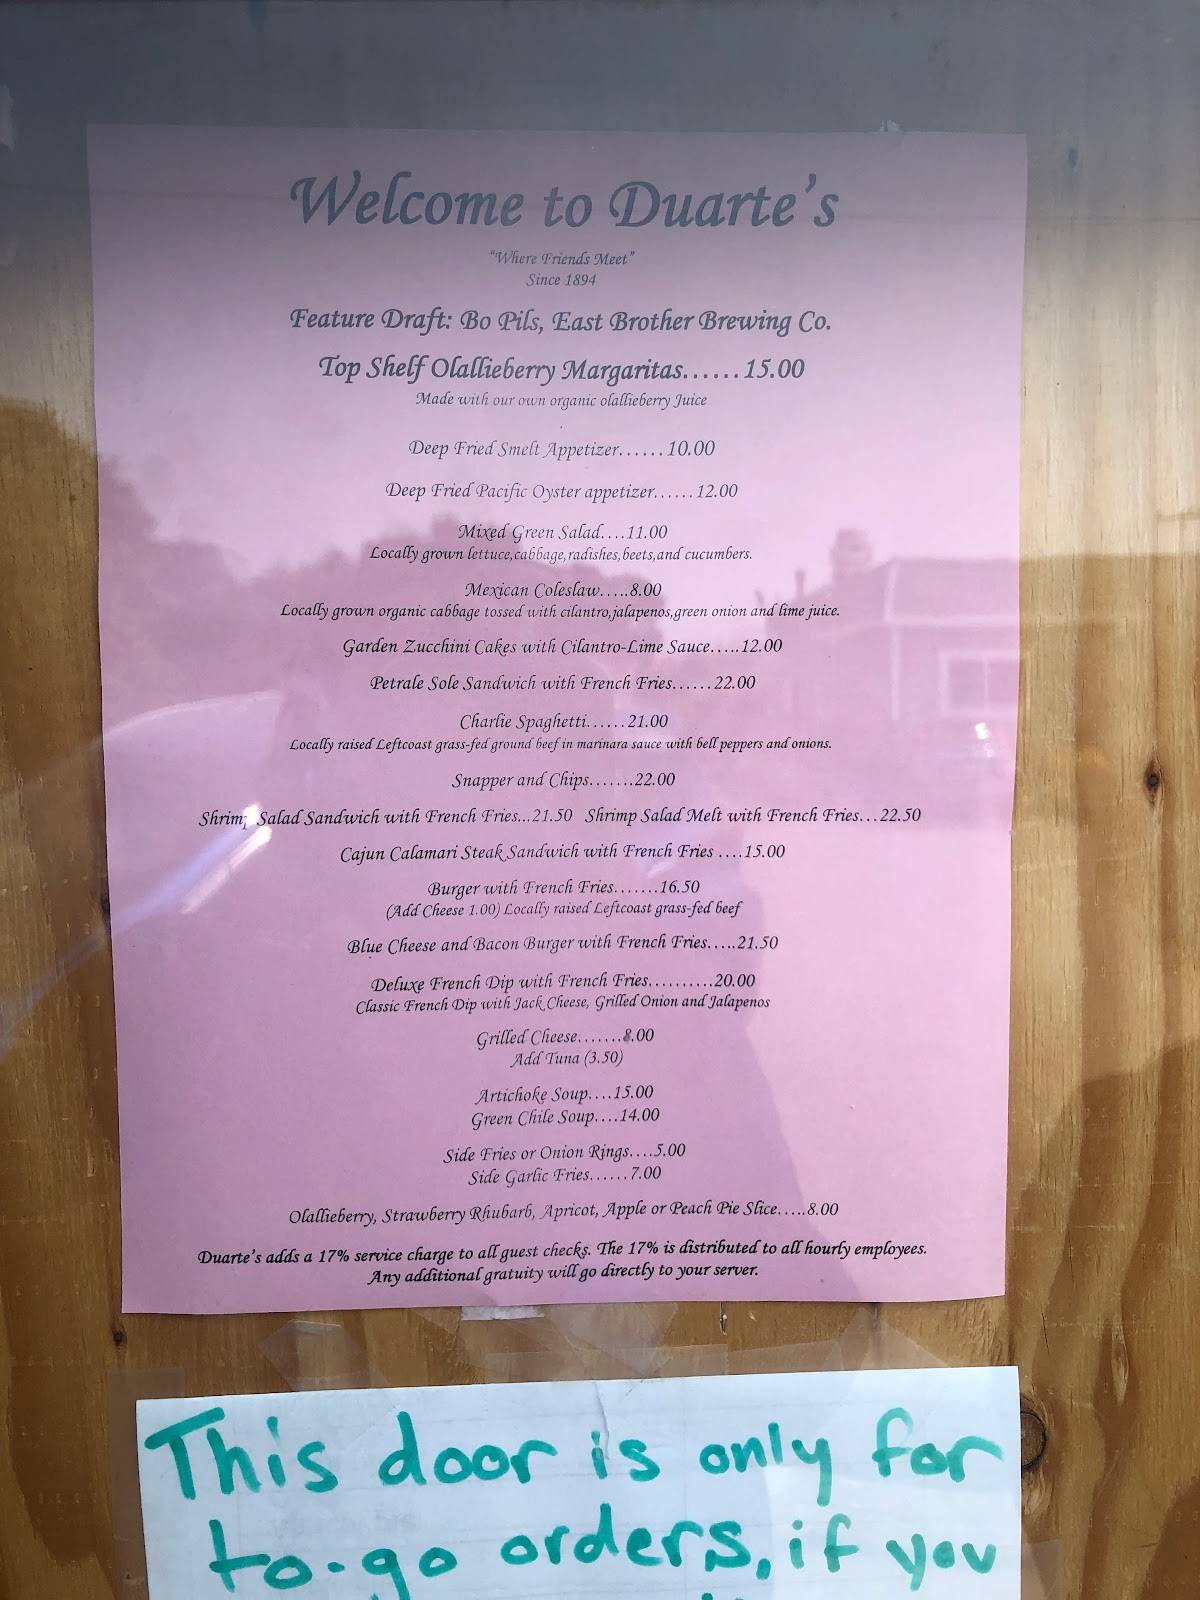 Welcome to Duarte's
"Where Friends Meet"
Since 1894
Feature Draft: Bo Pils, East Brother Brewing Co.
Top Shelf Olallieberry Margaritas......15.00
Made with our own organic olallieberry Juice
Deep Fried Smelt Appetizer......10.00
Deep Fried Pacific Oyster appetizer......12.00
Mixed Green Salad....11.00
Locally grown lettuce,cabbage,radishes,beets,and cucumbers.
Mexican Coleslaw.....8.00
Locally grown organic cabbage tossed with cilantro,jalapenos,green onion and lime juice.
Garden Zucchini Cakes with Cilantro-Lime Sauce.....12.00
Petrale Sole Sandwich with French Fries......22.00
Charlie Spaghetti......21.00
Locally raised Leftcoast grass-fed ground beef in marinara sauce with bell peppers and onions.
Snapper and Chips.......22.00
Shrimp Salad Sandwich with French Fries...21.50 Shrimp Salad Melt with French Fries...22.50
Cajun Calamari Steak Sandwich with French Fries ....15.00
Burger with French Fries.......16.50
(Add Cheese 1.00) Locally raised Leftcoast grass-fed beef
Blue Cheese and Bacon Burger with French Fries.....21.50
Deluxe French Dip with French Fries..........20.00
Classic French Dip with Jack Cheese, Grilled Onion and Jalapenos
Grilled Cheese.......8.00
Add Tuna (3.50)
Artichoke Soup....15.00
Green Chile Soup....14.00
Side Fries or Onion Rings....5.00
Side Garlic Fries......7.00
Olallieberry, Strawberry Rhubarb, Apricot, Apple or Peach Pie Slice.....8.00
Duarte's adds a 17% service charge to all guest checks. The 17% is distributed to all hourly employees.
Any additional gratuity will go directly to your server.
This door is only for
to-go orders, if you